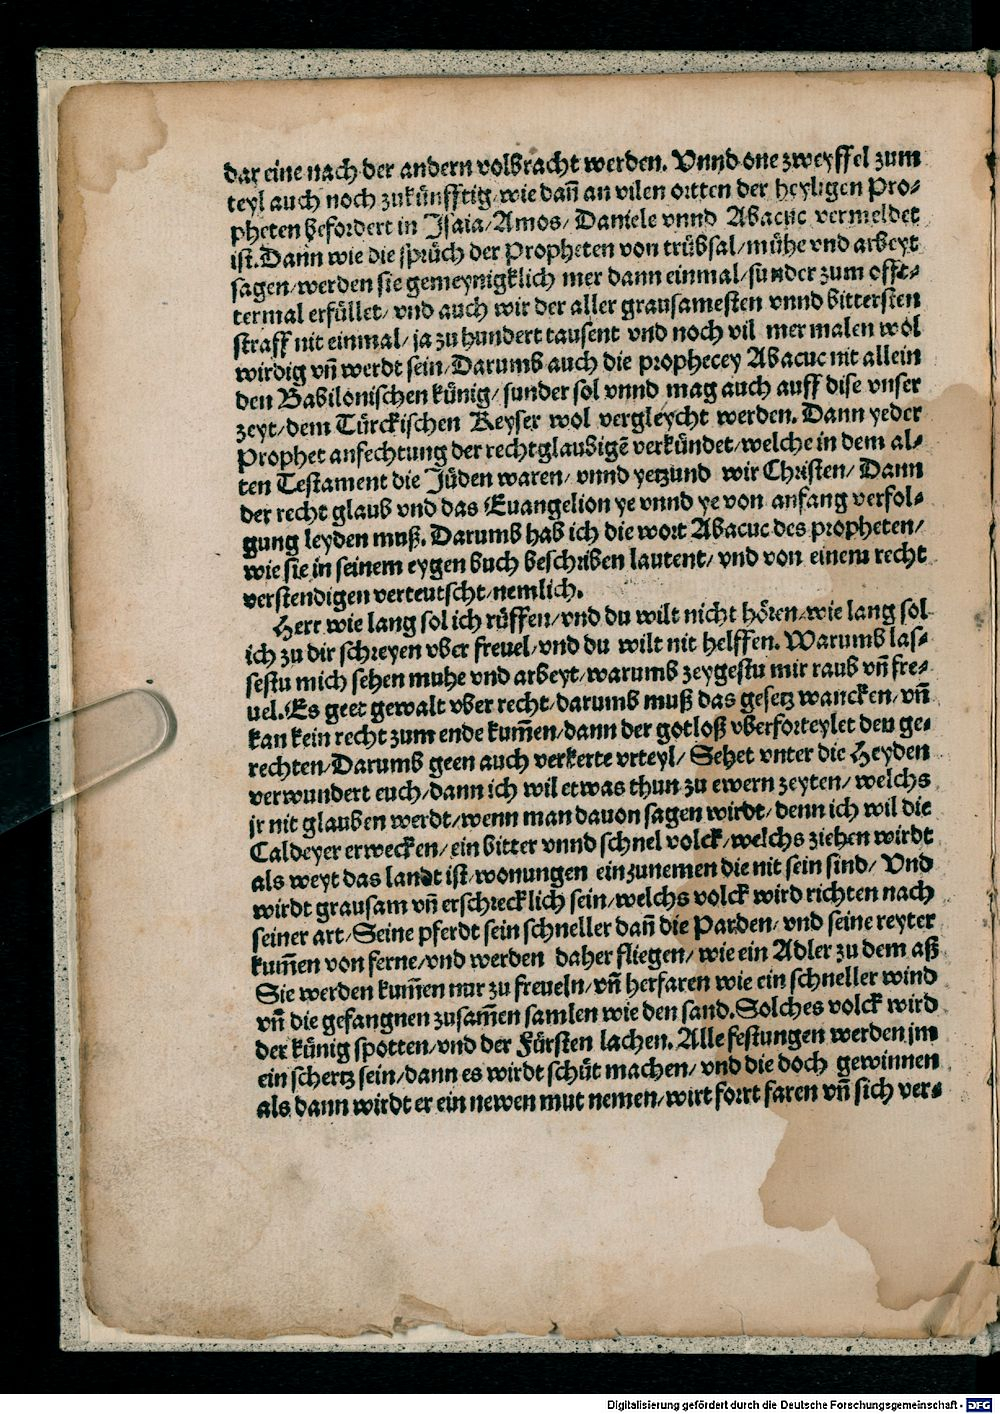 dar eine nach der andern volbracht werden. Vnnd one zweyffel zum
teyl auch noch zukünfftig/ wie dañ an vilen ortten der heyligen Pro⸗
pheten befordert in Jsaia/ Amos/ Daniele vnnd Abacuc vermeldet
ist. Dann wie die sprüch der Propheten von trübsal/ mühe vnd arbeyt
sagen/ werden sie gemeynigklich mer dann einmal/ sunder zum offt⸗
termal erfüllet/ vnd auch wir der aller grausamesten vnnd bittersten
straff nit einmal/ ja zu hundert tausent vnd noch vil mer malen wol
wirdig vñ werdt sein/ Darumb auch die prophecey Abacuc nit allein
den Babilonischen künig/ sunder sol vnnd mag auch auff dise vnser
zeyt/ dem Türckischen Keyser wol vergleycht werden. Dann yeder
Prophet anfechtung der rechtglaubigẽ verkündet/ welche in dem al⸗
ten Testament die Jüden waren/ vnnd yetzund wir Christen/ Dann
der recht glaub vnd das Euangelion ye vnnd ye von anfang verfol⸗
gung leyden muß. Darumb hab ich die wort Abacuc des propheten/
wie sie in seinem eygen buch beschriben lautent/ vnd von einem recht
verstendigen verteutscht/ nemlich.
Herr wie lang sol ich rüffen/ vnd du wilt nicht hören/ wie lang sol
ich zu dir schreyen vber freuel/ vnd du wilt nit helffen. Warumb las⸗
sestu mich sehen muhe vnd arbeyt/ warumb zeygestu mir raub vñ fre⸗
uel. Es geet gewalt vber recht/ darumb muß das gesetz wancken/ vñ
kan kein recht zum ende kum̃en/ dann der gotloß vberforteylet den ge⸗
rechten/ Darumb geen auch verkerte vrteyl/ Sehet vnter die Heyden
verwundert euch/ dann ich wil etwas thun zu ewern zeyten/ welchs
jr nit glauben werdt/ wenn man dauon sagen wirdt/ denn ich wil die
Caldeyer erwecken/ ein bitter vnnd schnel volck/ welchs ziehen wirdt
als weyt das landt ist/ wonungen einzunemen die nit sein sind/ Vnd
wirdt grausam vñ erschrecklich sein/ welchs volck wird richten nach
seiner art/ Seine pferdt sein schneller dañ die Parden/ vnd seine reyter
kum̃en von ferne/ vnd werden daher fliegen/ wie ein Adler zu dem aß
Sie werden kum̃en nur zu freueln/ vñ herfaren wie ein schneller wind
vñ die gefangnen zusam̃en samlen wie den sand. Solches volck wird
der künig spotten/ vnd der Fürsten lachen. Alle festungen werden jm
ein schertz sein/ dann es wirdt schüt machen/ vnd die doch gewinnen
als dann wirdt er ein newen mut nemen/ wirt forrt faren vñ sich ver⸗
Digitalisierung gefördert durch die Deutsche Forschungsgemeinschaft - DFG